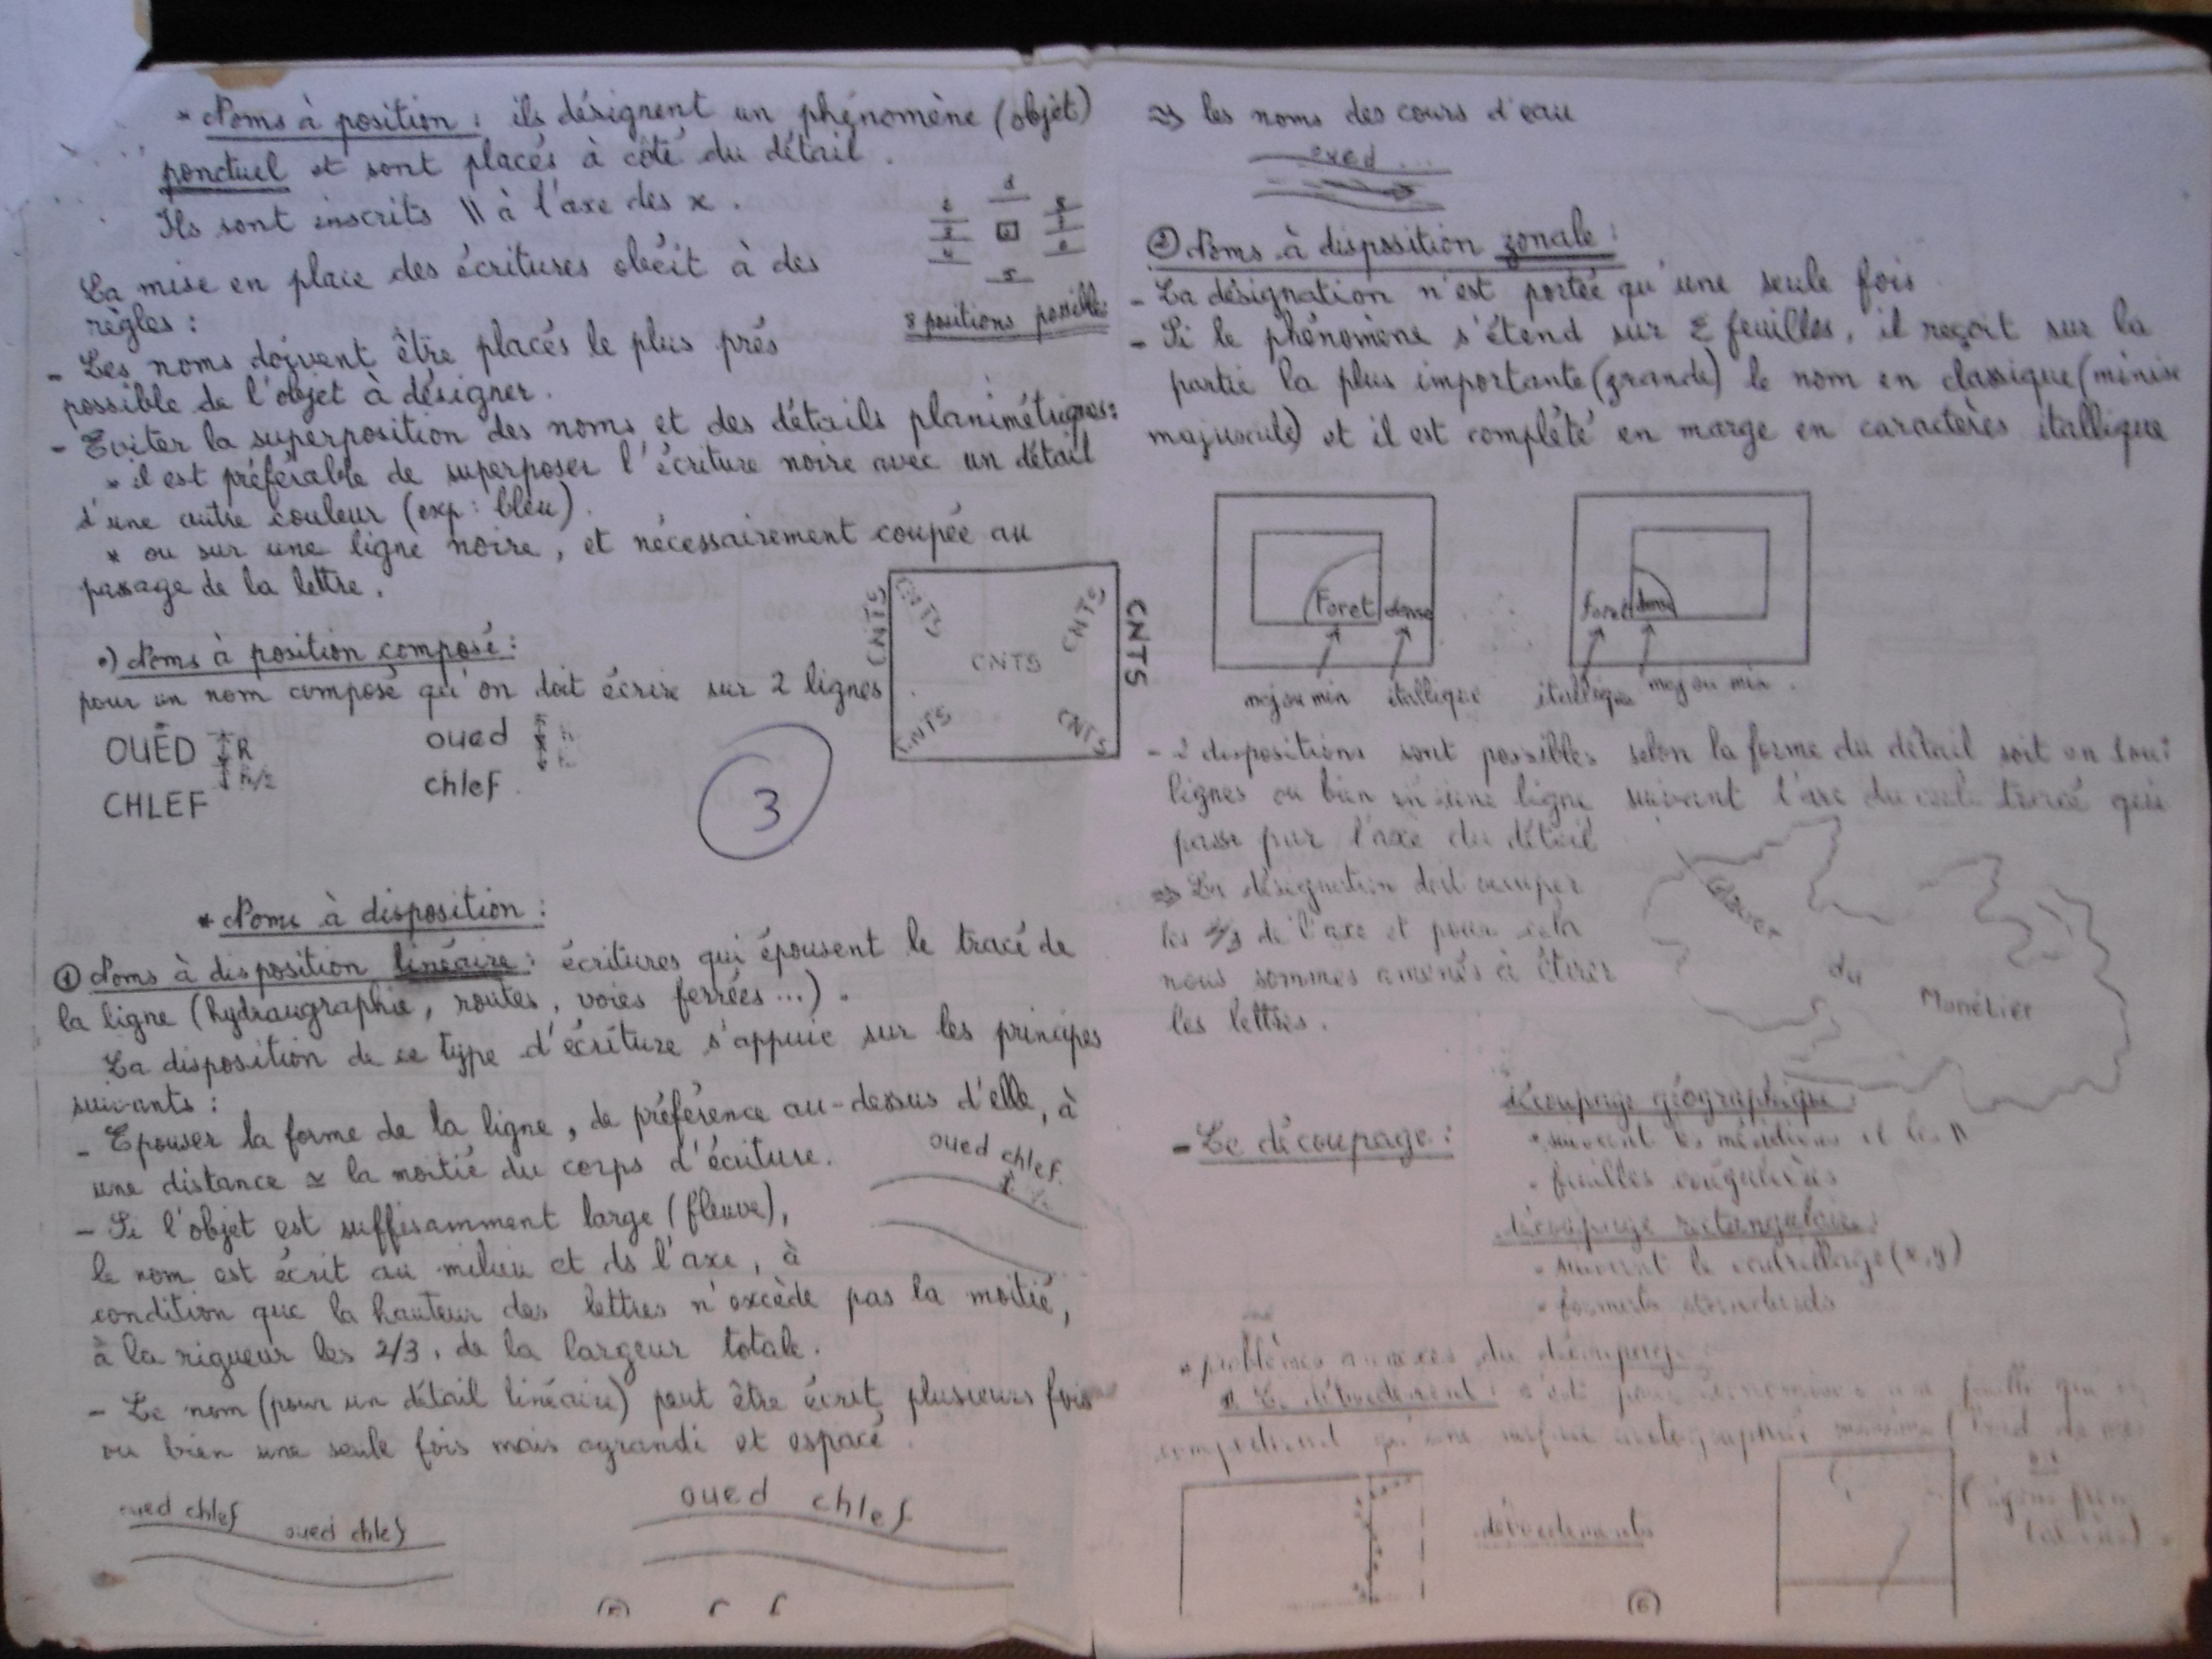 * Noms à position : ils désignent un phénomène (objet)
ponctuel et sont placés à côté du détail.
Ils sont inscrits \\ à l'axe des x.
La mise en place des écritures obéit à des
règles :
8 positions possibles
- Les noms doivent être placés le plus près
possible de l'objet à désigner.
- Eviter la superposition des noms et des détails planimétriques:
* il est préférable de superposer l'écriture noire avec un détail
d'une autre couleur (exp: bleu).
* ou sur une ligne noire, et nécessairement coupée au
passage de la lettre.
•) Noms à position composé :
pour un nom composé qu'on doit écrire sur 2 lignes
OUED
CHLEF
R
h/2
oued
chlef
CNTS
CNTS
CNTS
CNTS
CNTS
CNTS
CNTS
3
* Noms à disposition :
① Noms à disposition linéaire : écritures qui épousent le tracé de
la ligne (hydraugraphie, routes, voies ferrées...).
La disposition de ce type d'écriture s'appuie sur les principes
suivants :
- Epouser la forme de la ligne, de préférence au-dessus d'elle, à
une distance ≃ la moitié du corps d'écriture.
oued chlef
- Si l'objet est suffisamment large (fleuve),
le nom est écrit au milieu et ds l'axe, à
condition que la hauteur des lettres n'excède pas la moitié,
à la rigueur les 2/3, de la largeur totale.
- Le nom (pour un détail linéaire) peut être écrit plusieurs fois
ou bien une seule fois mais agrandi et espacé.
oued chlef
oued chlef
oued chlef
⇒ les noms des cours d'eau
oued ...
② Noms à disposition zonale :
- La désignation n'est portée qu'une seule fois
- Si le phénomène s'étend sur 2 feuilles, il reçoit sur la
partie la plus importante (grande) le nom en classique (minisc
majuscule) et il est complété en marge en caractères itallique
Foret dense
maj ou min itallique
foret dense
itallique maj ou min.
- 2 dispositions sont possibles selon la forme du détail soit en
lignes ou bien en une ligne suivant l'arc du tracé qui
passe par l'axe du détail
⇒ La désignation doit occuper
les 2/3 de l'axe et pour cela
nous sommes amenés à étirer
les lettres.
du
Monêtier
- Le découpage :
découpage géographique :
* suivant les méridiens et les //
feuilles irrégulières
découpage rectangulaire :
suivant le (x,y)
formats standards
* problèmes annexes du découpage
débordements
(6)